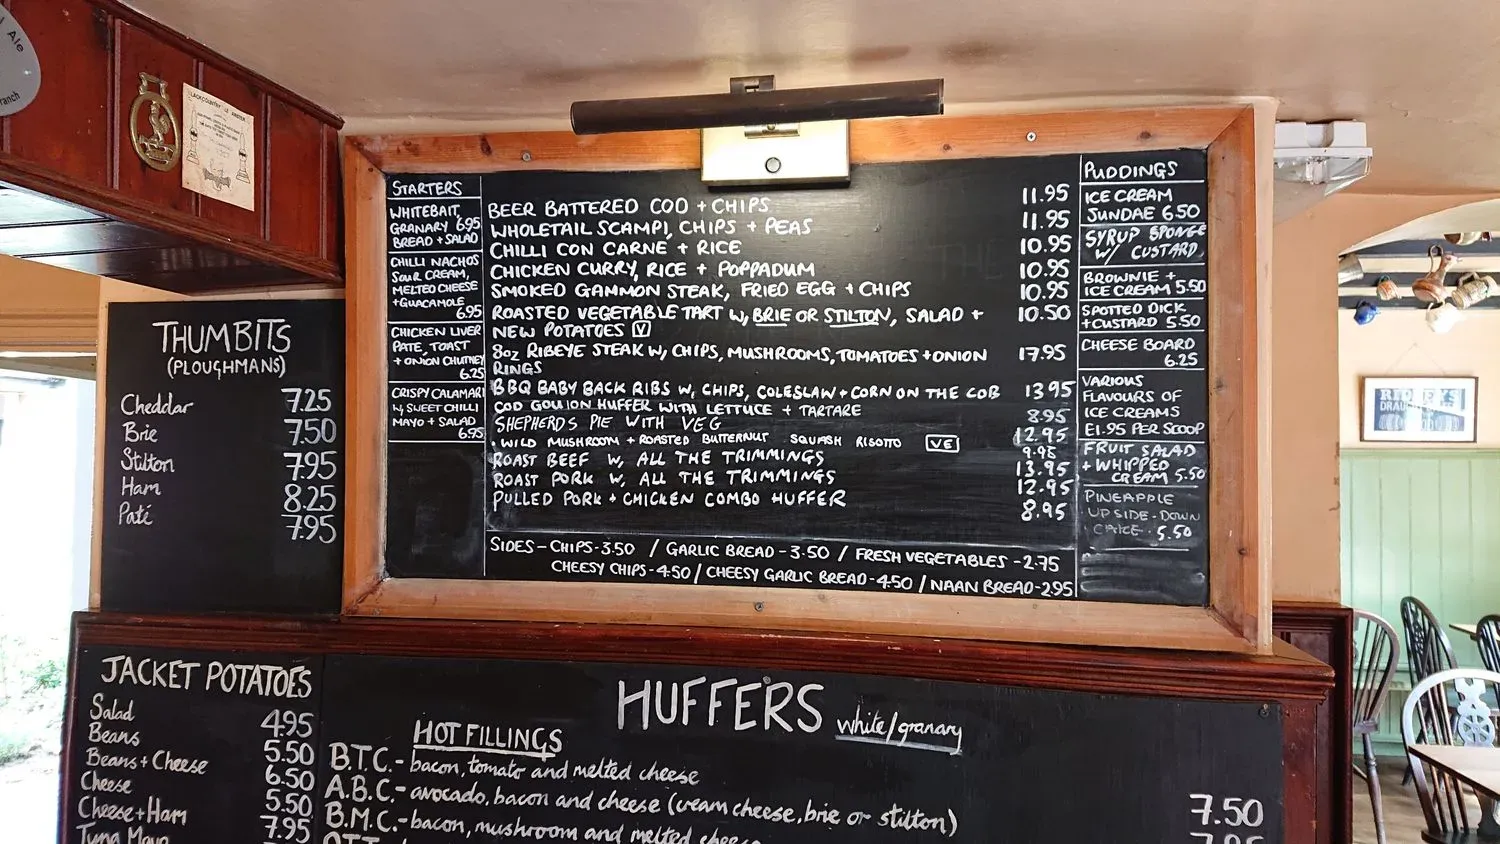 Ale
ranch
THUMBITS
(PLOUGHMANS)
Cheddar 7.25
Brie 7.50
Stilton 7.95
Ham 8.25
Paté 7.95
STARTERS
WHITEBAIT,
GRANARY 6.95
BREAD + SALAD
CHILLI NACHOS
SOUR CREAM,
MELTED CHEESE
+ GUACAMOLE
6.95
CHICKEN LIVER
PATE, TOAST
+ ONION CHUTNEY
6.25
CRISPY CALAMARI
W, SWEET CHILLI
MAYO + SALAD
6.95
BEER BATTERED COD + CHIPS 11.95
WHOLETAIL SCAMPI, CHIPS + PEAS 11.95
CHILLI CON CARNE + RICE 10.95
CHICKEN CURRY, RICE + POPPADUM 10.95
SMOKED GAMMON STEAK, FRIED EGG + CHIPS 10.95
ROASTED VEGETABLE TART W, BRIE OR STILTON, SALAD + 10.50
NEW POTATOES V
8oz RIBEYE STEAK W, CHIPS, MUSHROOMS, TOMATOES + ONION 17.95
RINGS
BBQ BABY BACK RIBS W, CHIPS, COLESLAW + CORN ON THE COB 13.95
COD GOUJON HUFFER WITH LETTUCE + TARTARE 8.95
SHEPHERDS PIE WITH VEG 12.95
WILD MUSHROOM + ROASTED BUTTERNUT SQUASH RISOTTO VE 9.95
ROAST BEEF W, ALL THE TRIMMINGS 13.95
ROAST PORK W, ALL THE TRIMMINGS 12.95
PULLED PORK + CHICKEN COMBO HUFFER 8.95
SIDES - CHIPS - 3.50 / GARLIC BREAD - 3.50 / FRESH VEGETABLES - 2.75
CHEESY CHIPS - 4.50 / CHEESY GARLIC BREAD - 4.50 / NAAN BREAD - 2.95
PUDDINGS
ICE CREAM
SUNDAE 6.50
SYRUP SPONGE
W/ CUSTARD
BROWNIE +
ICE CREAM 5.50
SPOTTED DICK
+ CUSTARD 5.50
CHEESE BOARD
6.25
VARIOUS
FLAVOURS OF
ICE CREAMS
£1.95 PER SCOOP
FRUIT SALAD
+ WHIPPED
CREAM 5.50
PINEAPPLE
UPSIDE-DOWN
CAKE 5.50
JACKET POTATOES
Salad 4.95
Beans 5.50
Beans + Cheese 6.50
Cheese 5.50
Cheese + Ham 7.95
Tuna Mayo
HUFFERS white/granary
HOT FILLINGS
B.T.C. - bacon, tomato and melted cheese
A.B.C. - avocado, bacon and cheese (cream cheese, brie or stilton) 7.50
B.M.C. - bacon, mushroom and melted cheese